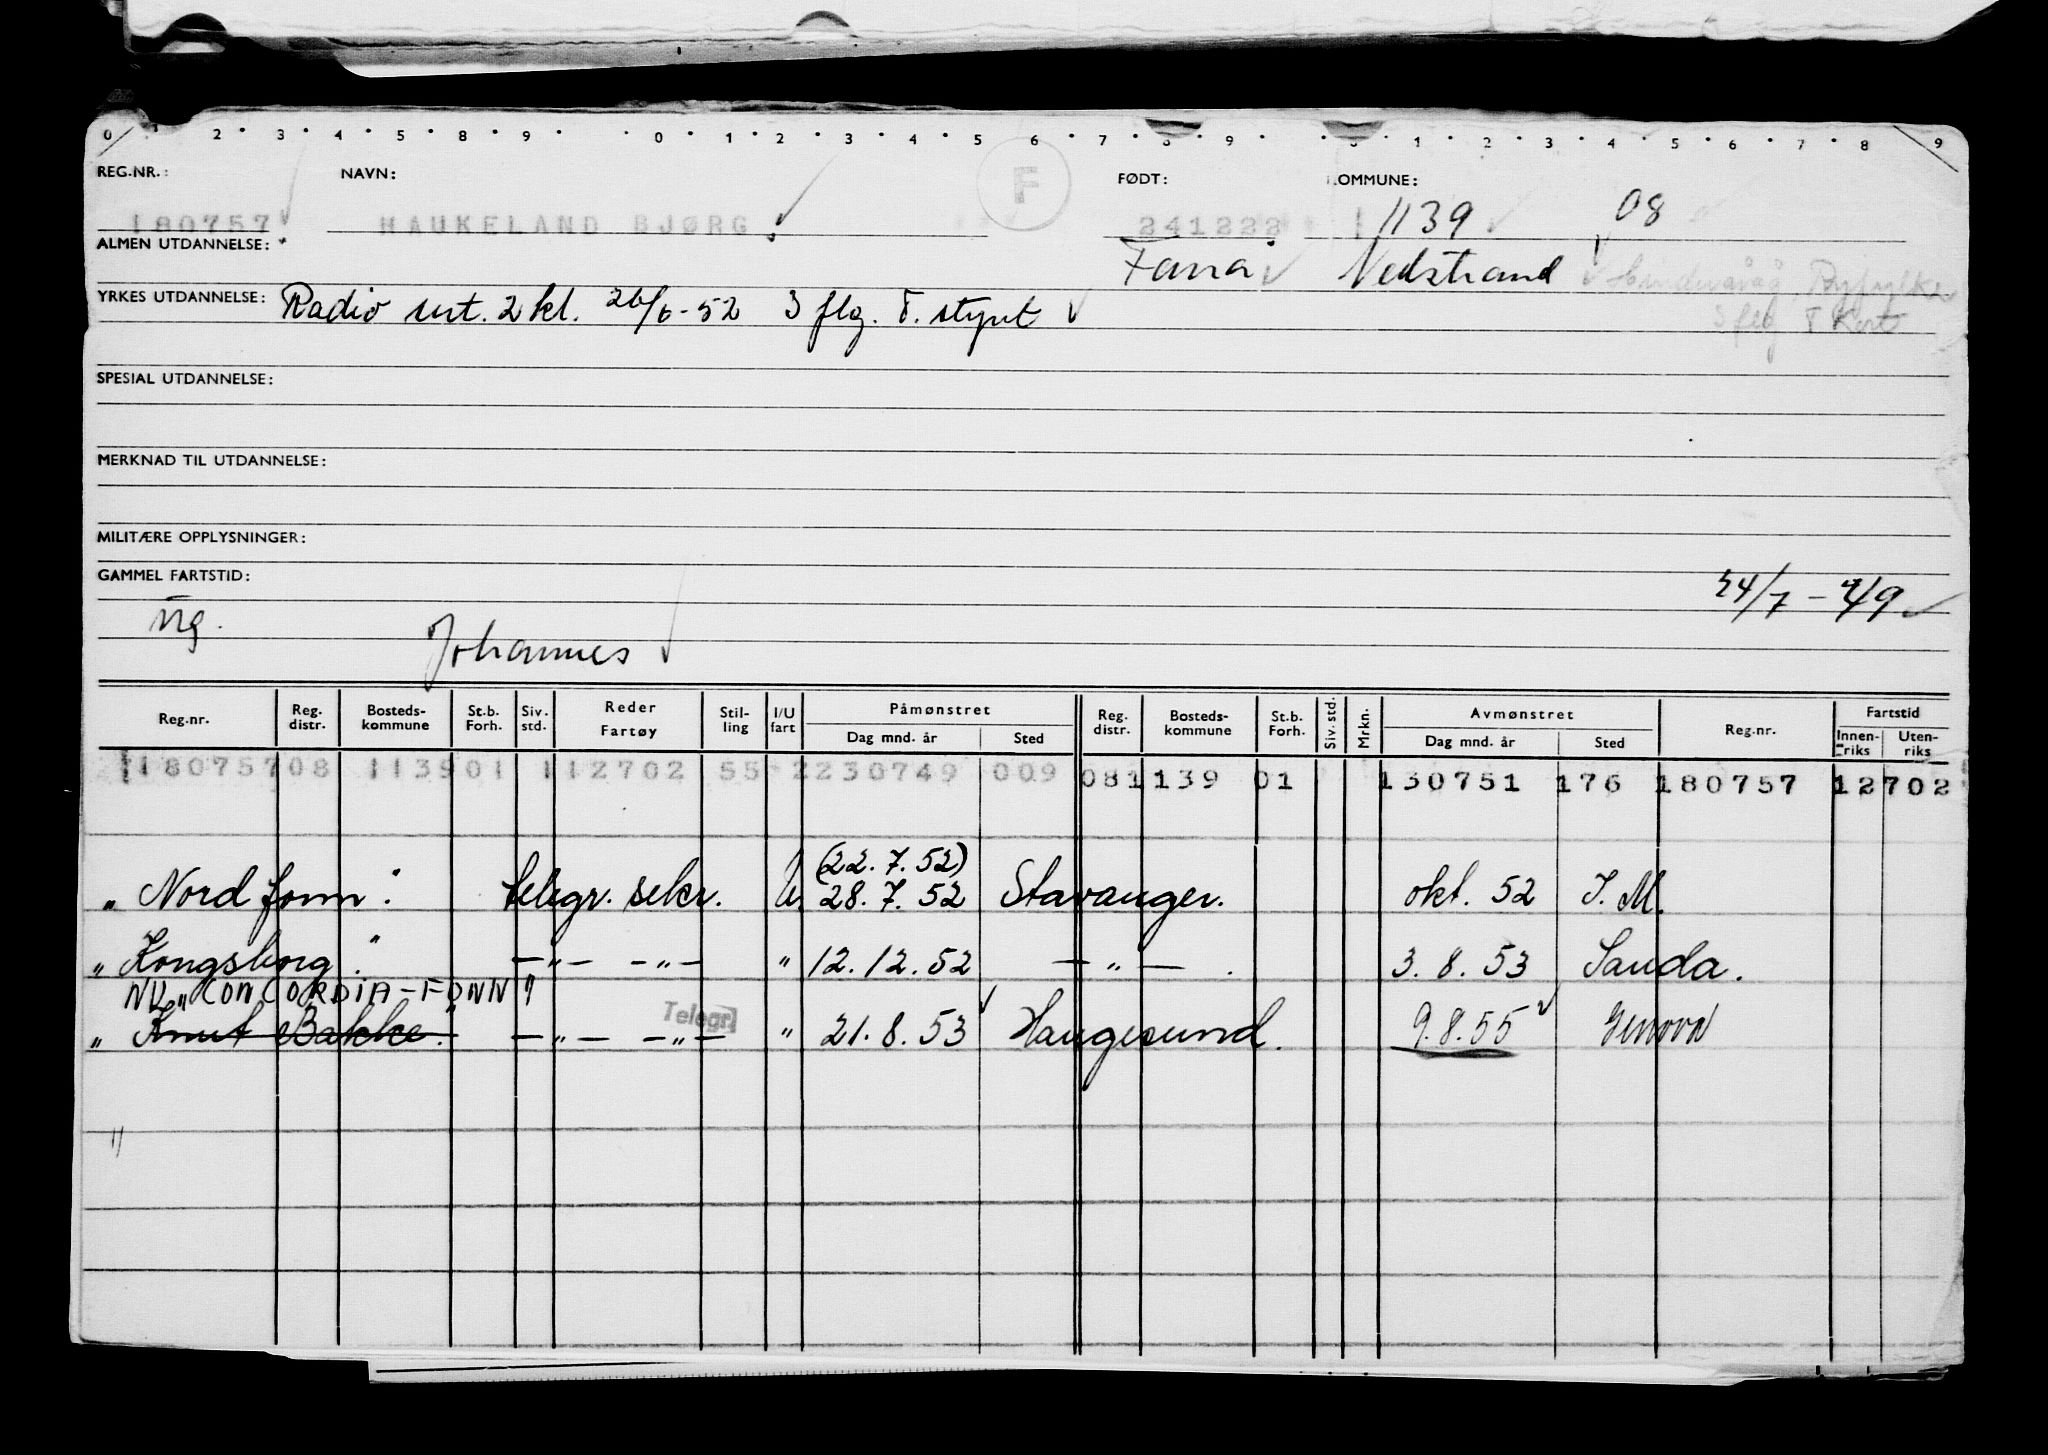 0 1 2 3 4 5 8 9 0 1 2 3 4 5 6 7 8 9 1 2 3 4 5 6 7 8 9
REG.NR.: NAVN: F FØDT: KOMMUNE:
180757 HAUKELAND BJØRG 241222 1139 08
ALMEN UTDANNELSE: Fana Nedstrand Ryfylke
YRKES UTDANNELSE: Radio sert. 2 kl. 26/6-52 3 flg. T. styrt
3 flg T Kort
SPESIAL UTDANNELSE:
MERKNAD TIL UTDANNELSE:
MILITÆRE OPPLYSNINGER:
GAMMEL FARTSTID: 24/7 - 4/9
ug.
Johannes
Reg.nr. Reg. distr. Bosteds-kommune St.b. Forh. Siv. std. Reder Fartøy Stil-ling I/U fart Påmønstret Dag mnd. år Sted Reg. distr. Bosteds-kommune St.b. Forh. Siv. std. Mrkn. Avmønstret Dag mnd. år Sted Reg.nr. Fartstid Innen-riks Uten-riks
180757 08 1139 01 1 12702 55 2 230749 009 08 1139 01 130751 176 180757 12702
(22.7.52)
„Nordfonn". telegr. sekr. U. 28.7.52 Stavanger. okt. 52 I. M.
„Kongsborg". —"— —"— " 12.12.52 —"—. 3.8.53 Sauda.
NU „CONCORDIA-FONN"
„Knut Bakke". —"— —"— Telegr. " 21.8.53 Haugesund. 9.8.55 Genova
"